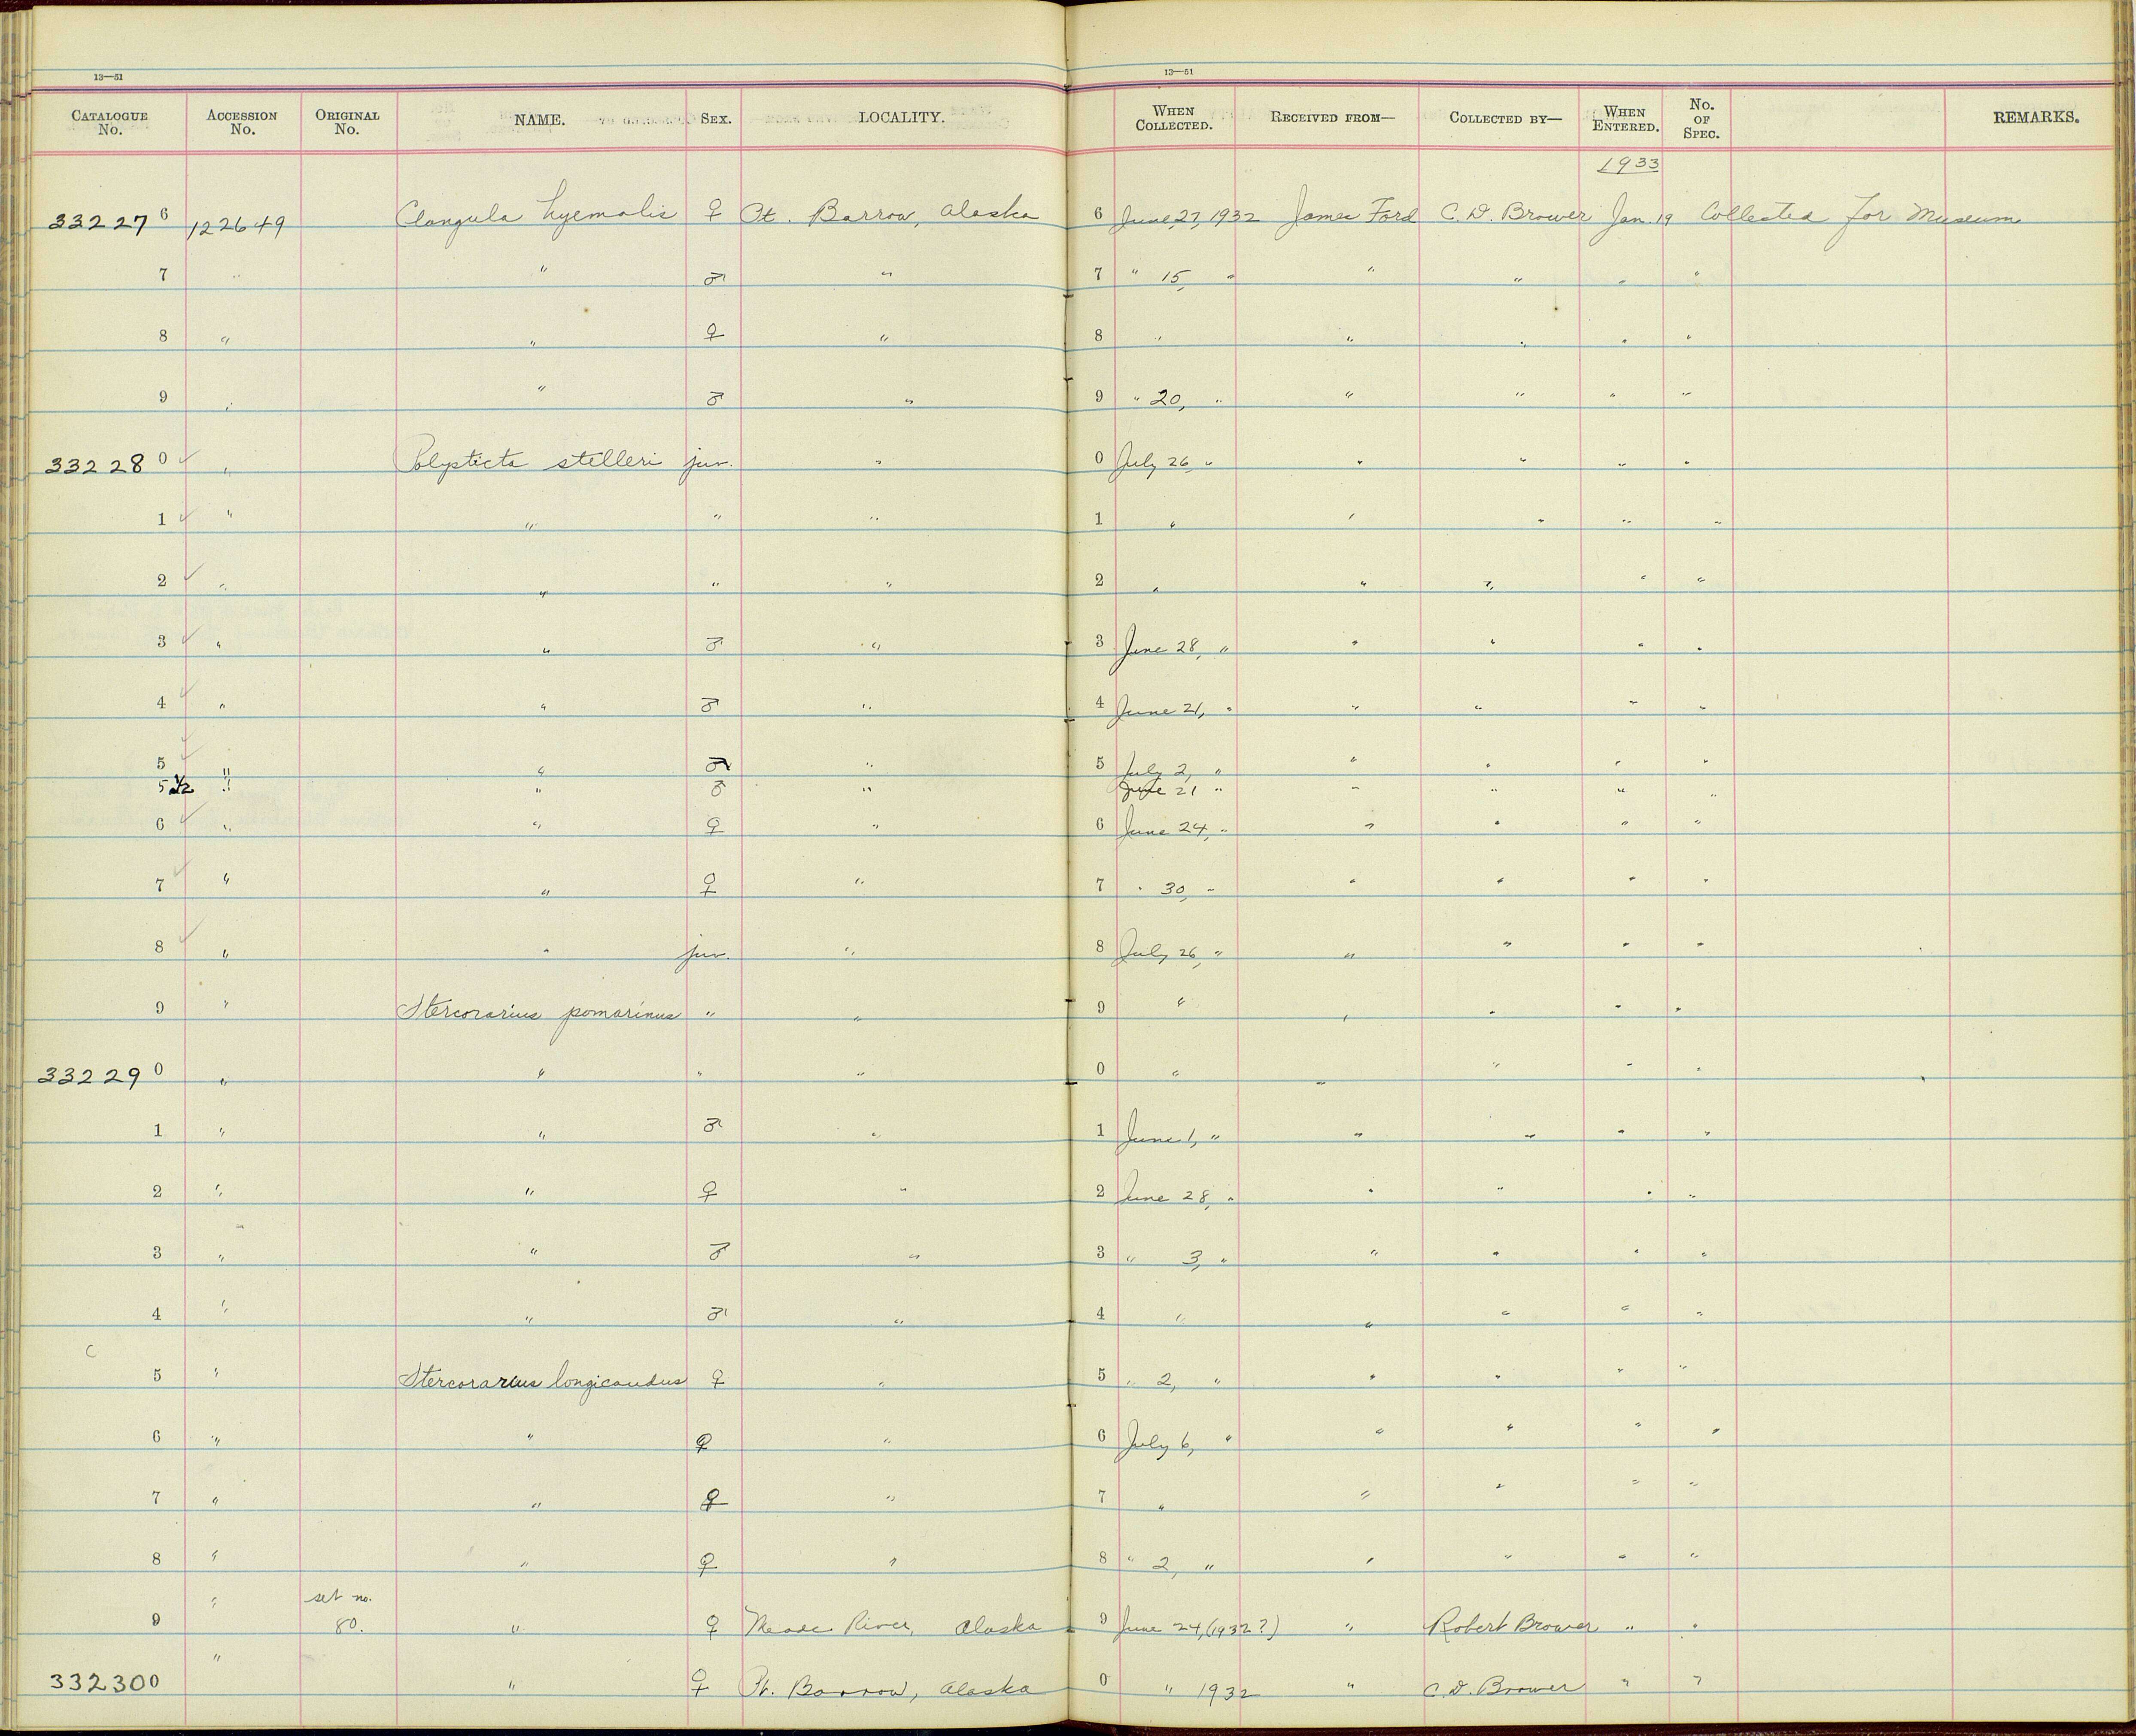 13—51 13—51
CATALOGUE No. ACCESSION No. ORIGINAL No. NAME. SEX. LOCALITY. WHEN COLLECTED. RECEIVED FROM— COLLECTED BY— WHEN ENTERED. No. OF SPEC. REMARKS.
1933
332276 122649 Clangula hyemalis ♀ Pt. Barrow, Alaska 6 June 27, 1932 James Ford C. D. Brower Jan. 19 Collected for Museum
7 " " ♂ " 7 " 15, " " " " "
8 " " ♀ " 8 " " " " "
9 " " ♂ " 9 " 20, " " " " "
332280 ✓ " Polysticta stelleri juv. " 0 July 26, " " " " "
1 ✓ " " " " 1 " " " " "
2 ✓ " " " " 2 " " " " "
3 ✓ " " ♂ " 3 June 28, " " " " "
4 ✓ " " ♂ " 4 June 21, " " " " "
5 ✓ " " ♂ " 5 July 2, " " " " "
5 1/2 " " ♂ " June 21 " " " " "
6 ✓ " " ♀ " 6 June 24, " " " " "
7 ✓ " " ♀ " 7 " 30, " " " " "
8 ✓ " " juv. " 8 July 26, " " " " "
9 " Stercorarius pomarinus " " 9 " " " " "
332290 " " " " 0 " " " " "
1 " " ♂ " 1 June 1, " " " " "
2 " " ♀ " 2 June 28, " " " " "
3 " " ♂ " 3 " 3, " " " " "
4 " " ♂ " 4 " " " " "
C
5 " Stercorarius longicaudus ♀ " 5 " 2, " " " " "
6 " " ♀ " 6 July 6, " " " " "
7 " " ♀ " 7 " " " " "
8 " " ♀ " 8 " 2, " " " " "
9 " set no. 80. " ♀ Meade River, Alaska 9 June 24, (1932?) " Robert Brower " "
332300 " " ♀ Pt. Barrow, Alaska 0 " 1932 " C. D. Brower " "